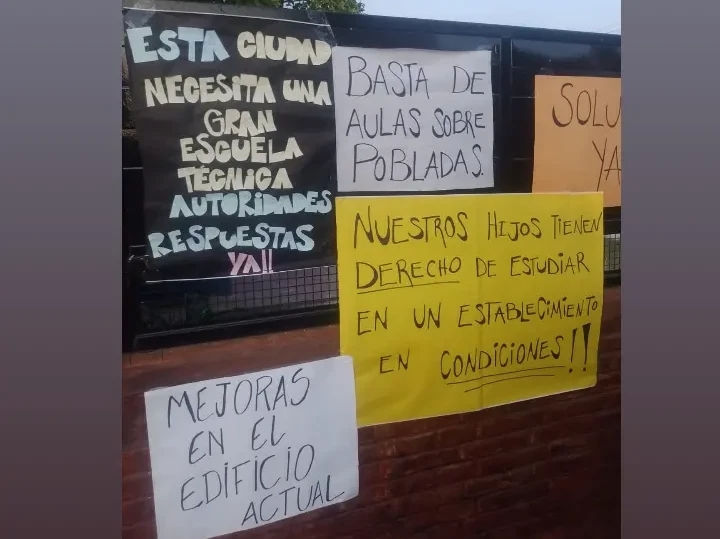 ESTA CIUDAD
NECESITA UNA
GRAN
ESCUELA
TECNICA
AUTORIDADES
RESPUESTAS
YA!!
BASTA DE
AULAS SOBRE
POBLADAS.
SOLU
YA
NUESTROS HIJOS TIENEN
DERECHO DE ESTUDIAR
EN UN ESTABLECIMIENTO
EN CONDICIONES!!
MEJORAS
EN EL
EDIFICIO
ACTUAL